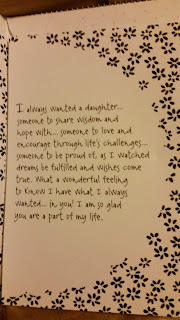 I always wanted a daughter...
someone to share wisdom and
hope with... someone to love and
encourage through life's challenges...
someone to be proud of, as I watched
dreams be fulfilled and wishes come
true. What a wonderful feeling
to know I have what I always
wanted... in you! I am so glad
you are a part of my life.